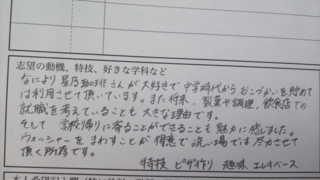 志望の動機、特技、好きな学科など
なにより星乃珈琲さんが大好きで中学時代からおこづかいを貯めて
は利用させて頂いています。また将来、製菓や調理、飲食店での
就職を考えていることも大きな理由です。
そして 学校帰りに寄ることができることも魅力に感じました。
ウォッシャーをまわすことが得意で洗い場では尽力させて
頂く所存です。
特技 ピザ作り 趣味 エレキベース